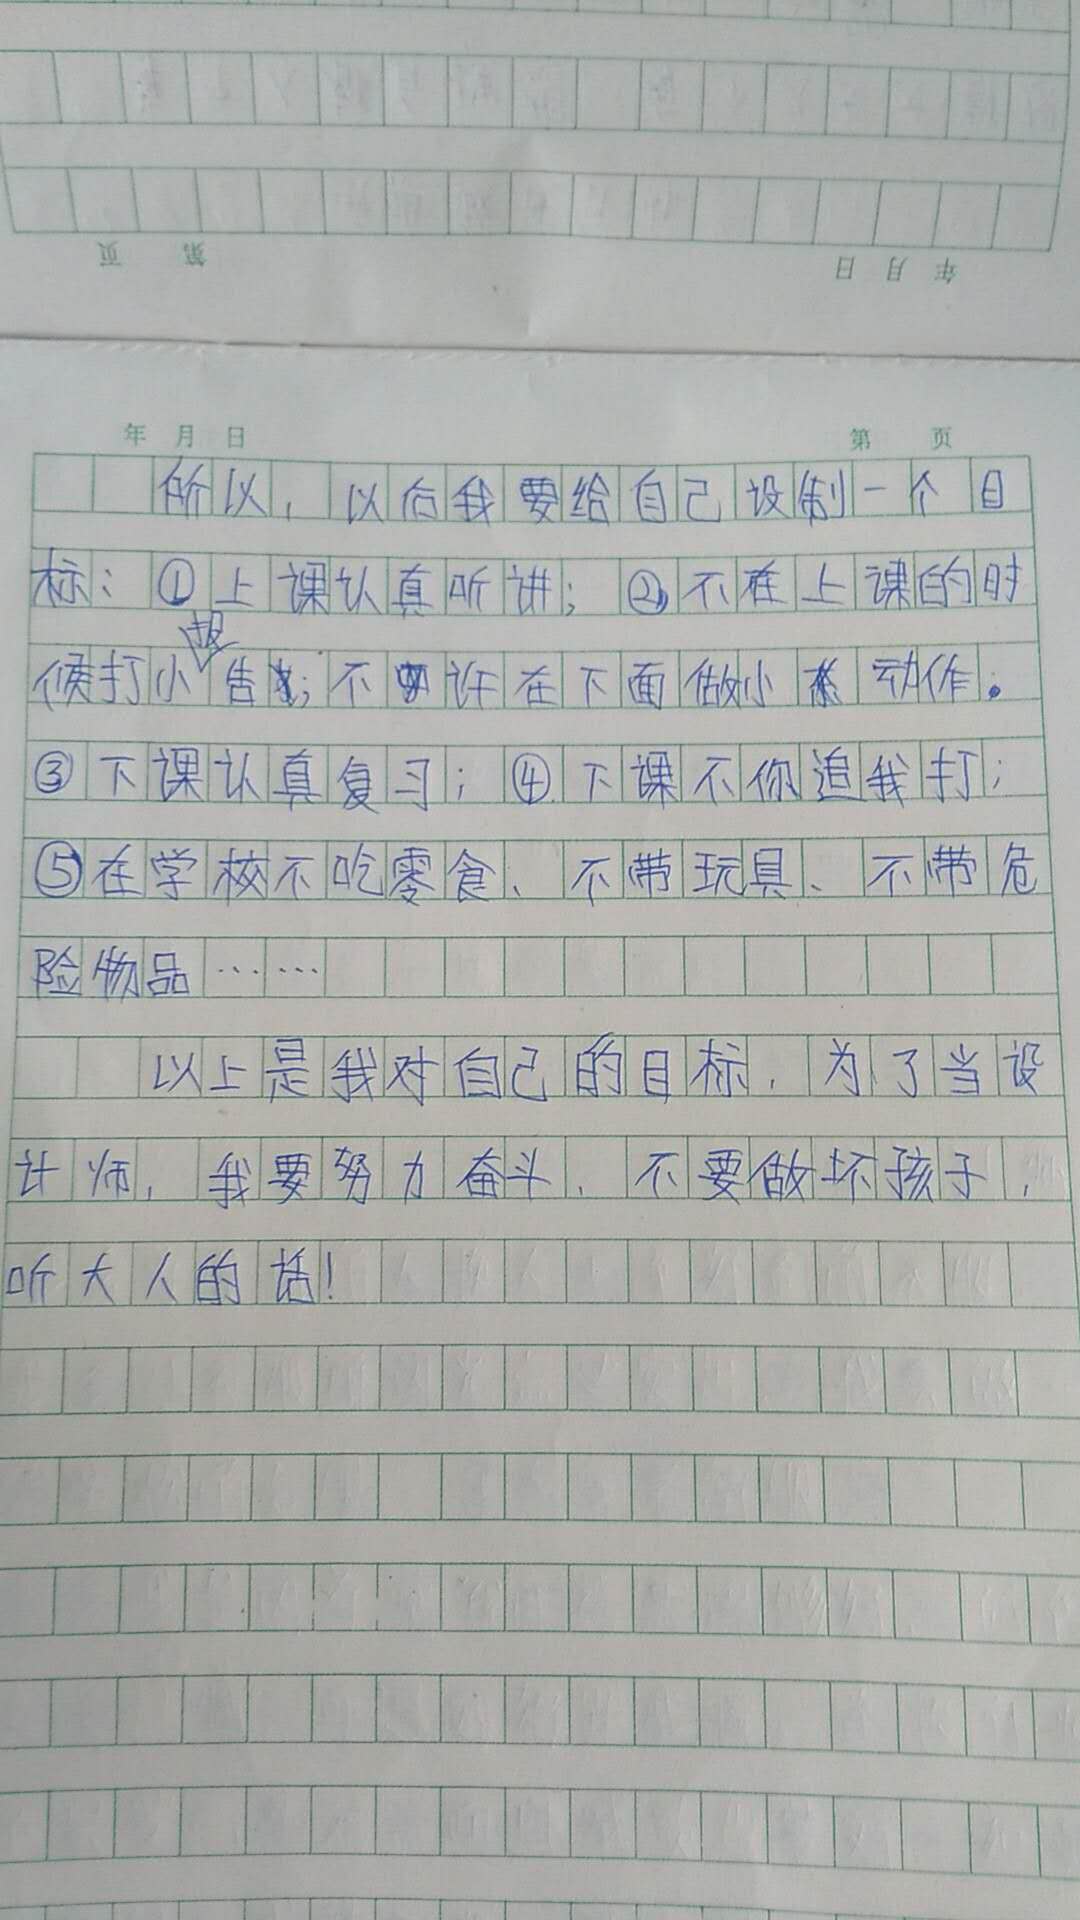 第 页 年 月 日
年 月 日 第 页
所以，以后我要给自己设制一个目
标：①上课认真听讲；②不在上课的时
候打小报告；不许在下面做小动作。
③下课认真复习；④下课不你追我打；
⑤在学校不吃零食、不带玩具、不带危
险物品……
以上是我对自己的目标，为了当设
计师，我要努力奋斗、不要做坏孩子，
听大人的话！